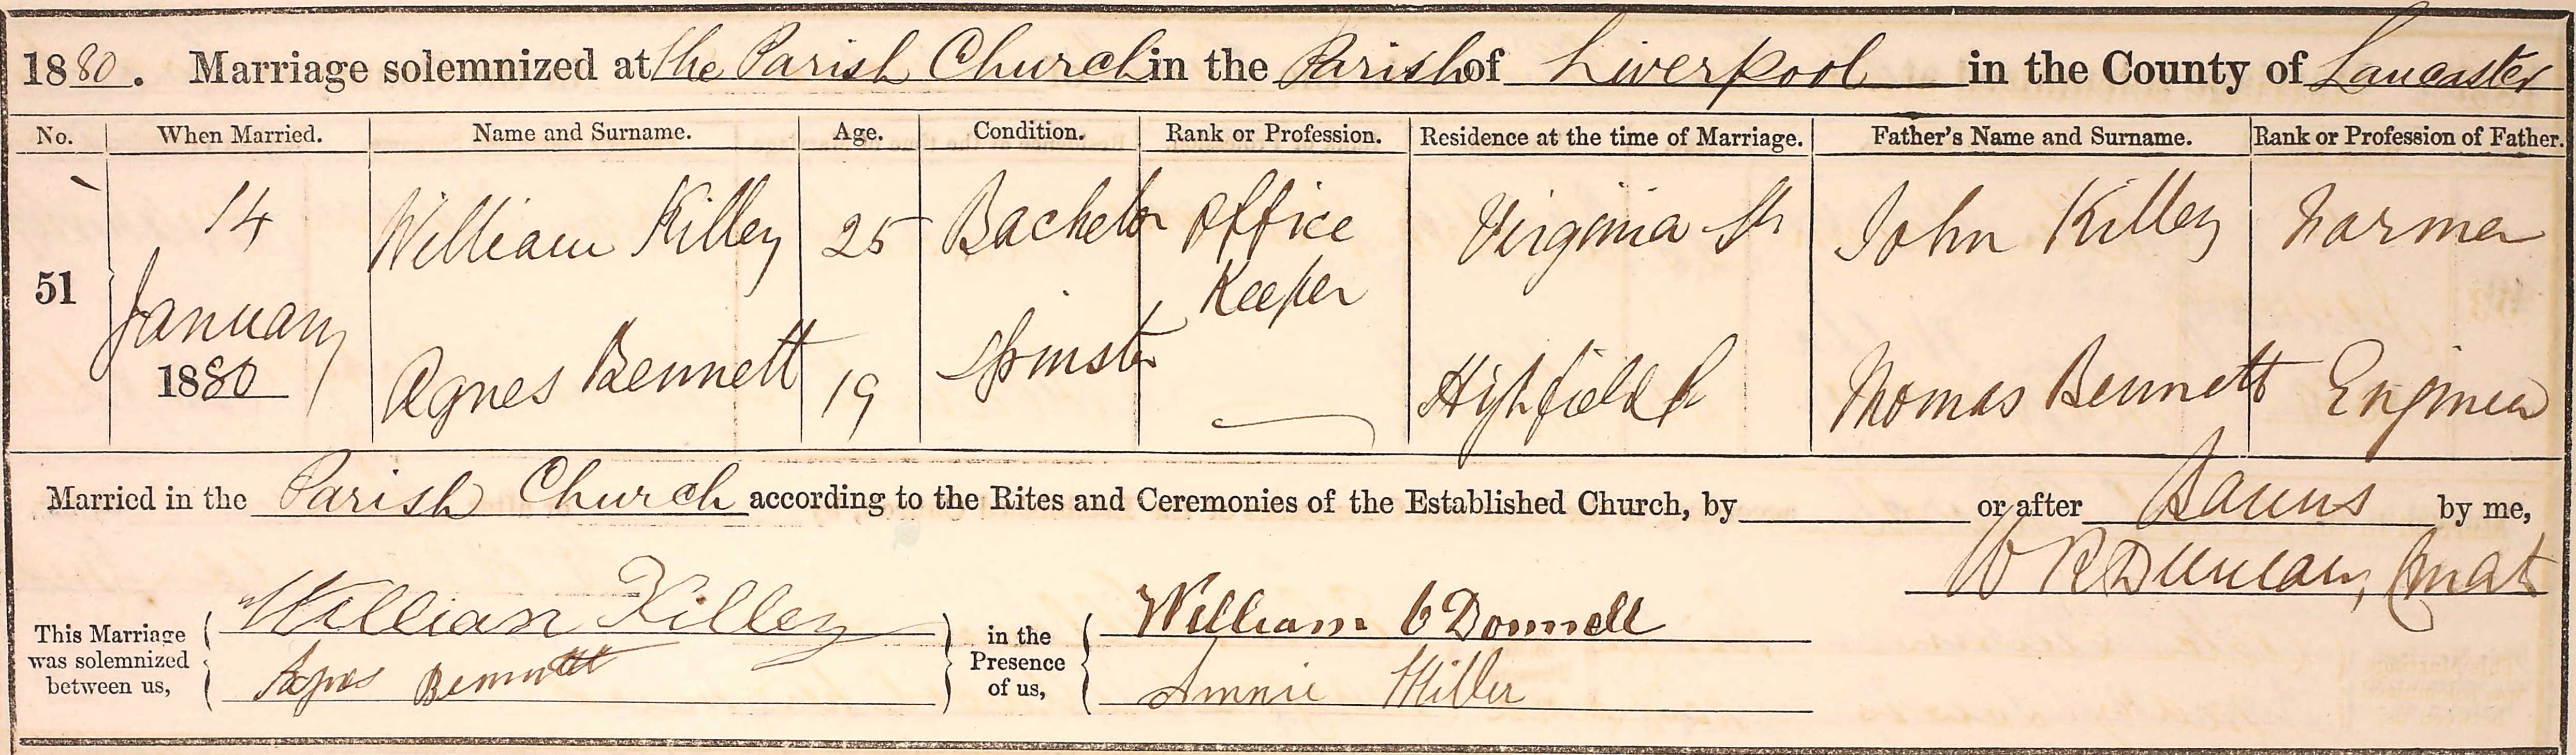 1880. Marriage solemnized at the Parish Church in the Parish of Liverpool in the County of Lancaster
No. When Married. Name and Surname. Age. Condition. Rank or Profession. Residence at the time of Marriage. Father's Name and Surname. Rank or Profession of Father.
51 14 January 1880 William Killey 25 Bachelor Office Keeper Virginia St John Killey Farmer
Agnes Bennett 19 Spinster Highfield St Thomas Bennett Engineer
Married in the Parish Church according to the Rites and Ceremonies of the Established Church, by or after Banns by me,
W R Duncan, Curate
This Marriage was solemnized between us, William Killey in the Presence of us, William O'Donnell
Agnes Bennett Annie Miller